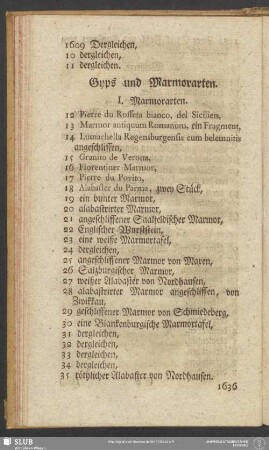 1609 Dergleichen,
10 dergleichen,
11 dergleichen.
Gyps und Marmorarten.
I. Marmorarten.
12 Pierre du Rosseta bianco, del Sicilien,
13 Marmor antiquum Romanum, ein Fragment,
14 Lumachella Regensburgensis cum belemnitis
angeschliffen,
15 Granito de Verona,
16 Florentiner Marmor,
17 Pierre du Povito,
18 Alabaster du Parma, zwey Stück,
19 ein bunter Marmor,
20 alabastrirter Marmor,
21 angeschliffener Saalfeldischer Marmor,
22 Englischer Wurststein,
23 eine weiße Marmortafel,
24 dergleichen,
25 angeschliffener Marmor von Maxen,
26 Salzburgischer Marmor,
27 weißer Alabaster von Nordhausen,
28 alabastrirter Marmor angeschliffen, von
Zwikkau,
29 geschliffener Marmor von Schmiedeberg,
30 eine Blankenburgische Marmortafel,
31 dergleichen,
32 dergleichen,
33 dergleichen,
34 dergleichen,
35 röthlicher Alabaster von Nordhausen.
1636
SLUB